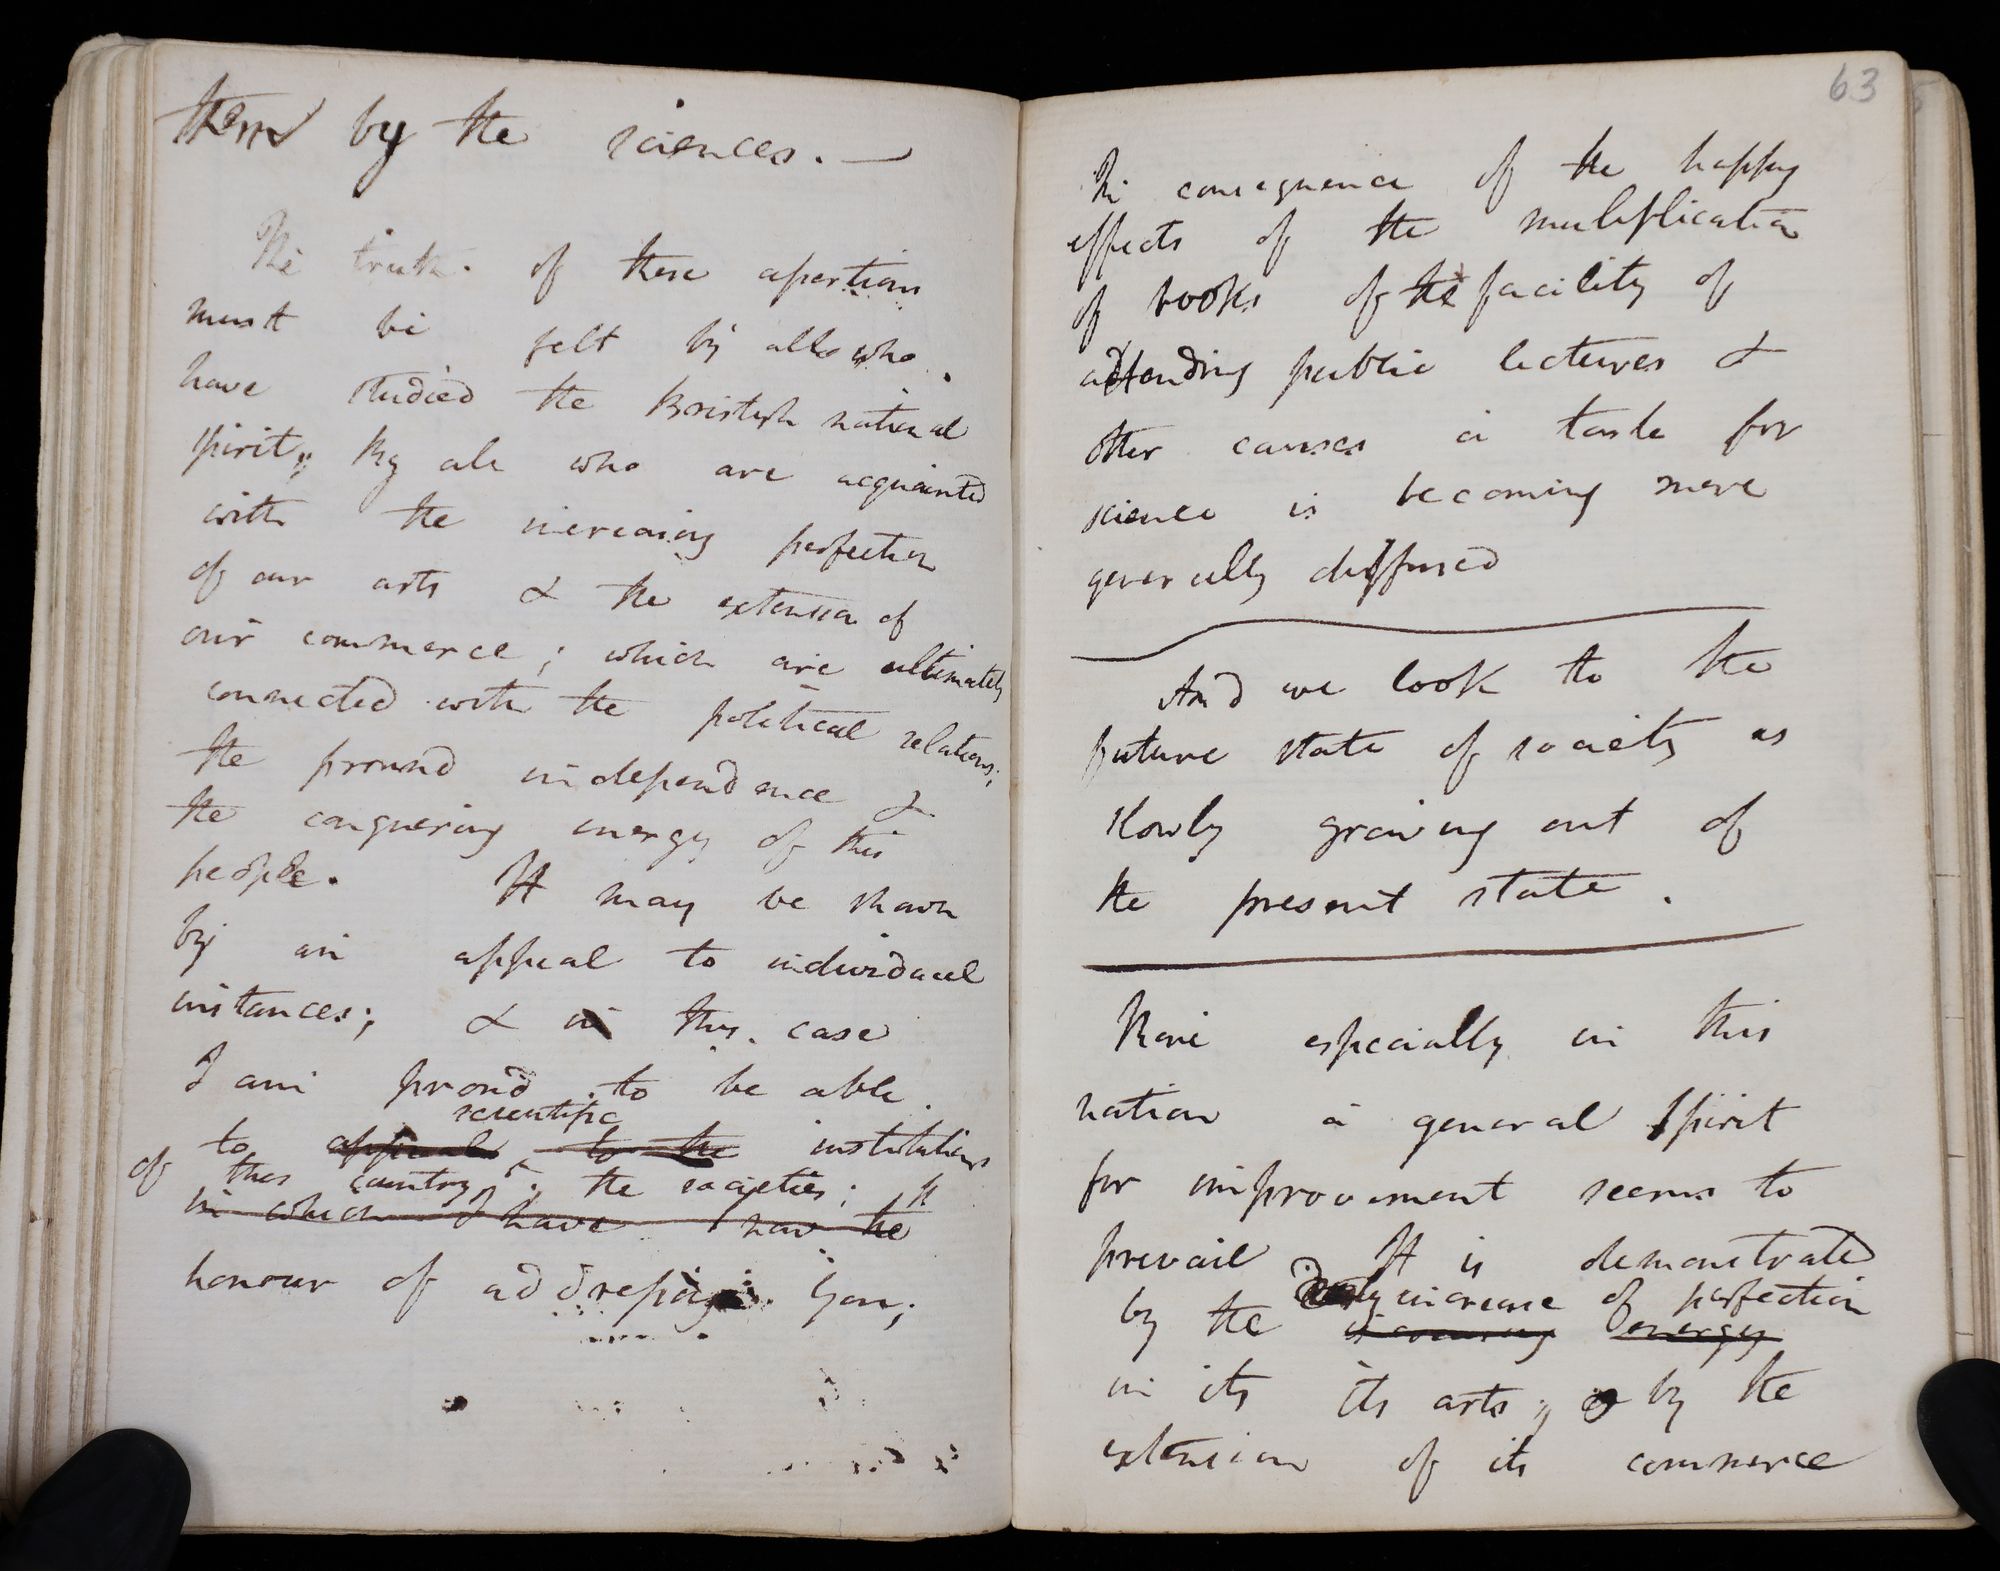 them by the sciences. —
The truth of these assertions
must be felt by all who
have studied the British national
spirit; By all who are acquainted
with the increasing perfection
of our arts & the extension of
our commerce; which are ultimately
connected with the political relations;
the proud independence &
the conquering energy of this
people. It may be shown
by an appeal to individual
instances; & in this case
I am proud to be able
scientific
to appeal to the institutions
of this country. the societies;
in which I have now the
honour of addressing You;
63
In consequence of the happy
effects of the multiplication
of books of the facility of
attending public lectures &
other causes a taste for
science is becoming more
generally diffused
And we look to the
future state of society as
slowly growing out of
the present state.
More especially in this
nation a general spirit
for improvement seems to
prevail It is demonstrated
daily increase of perfection
by the increasing energy
in its its arts; by the
extension of its commerce